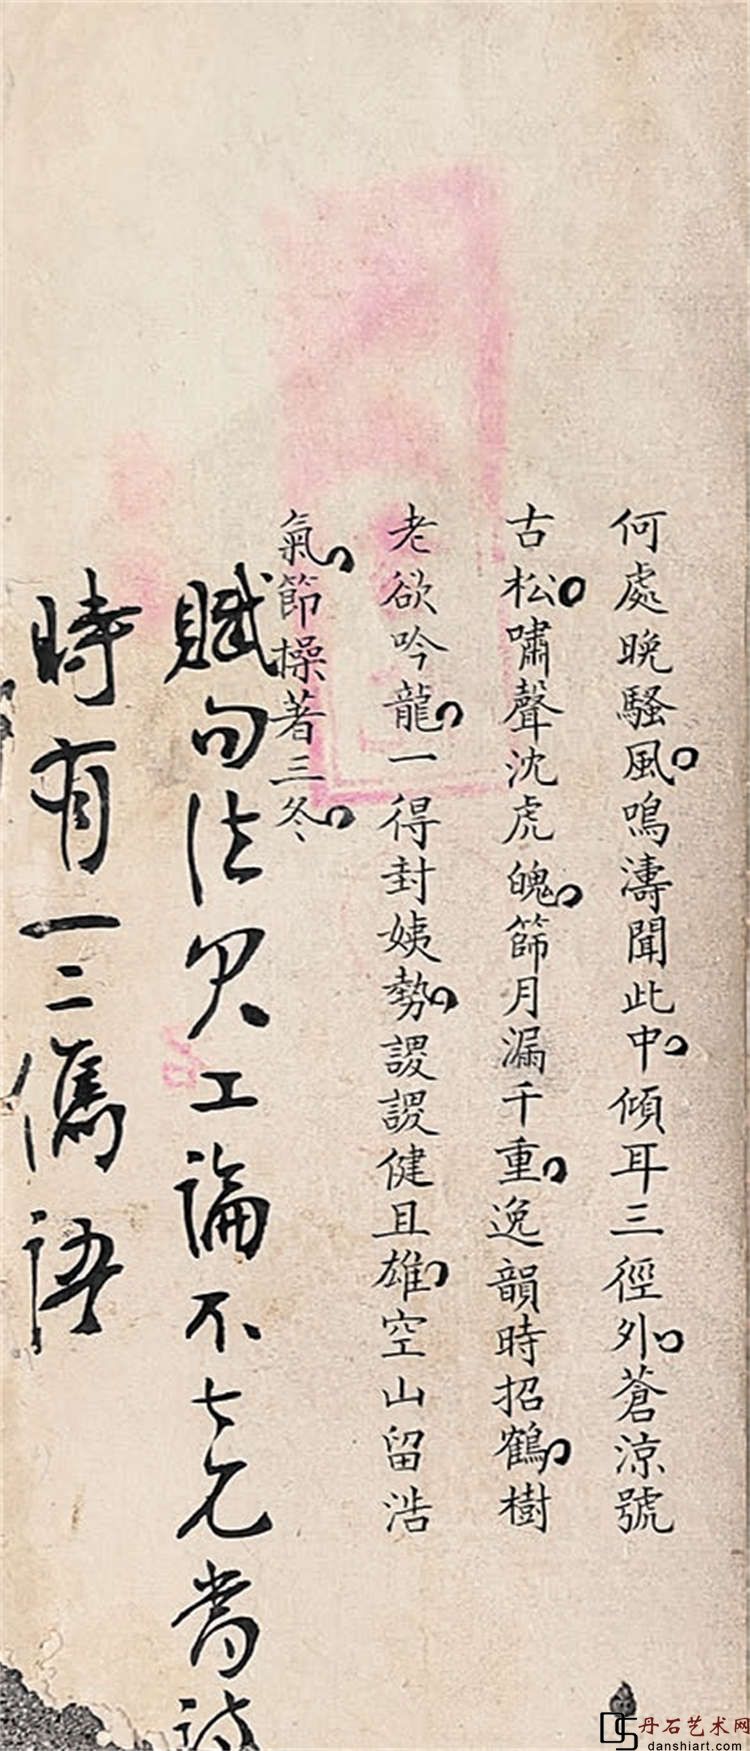 何處晚騷風鳴濤聞此中傾耳三徑外蒼涼號
古松嘯聲沈虎魄篩月漏千重逸韻時招鶴樹
老欲吟龍一得封姨勢謖謖健且雄空山留浩
氣節操著三冬
賦句法
工論不
當詩
時有一二
語
丹石艺术网
danshiart.com